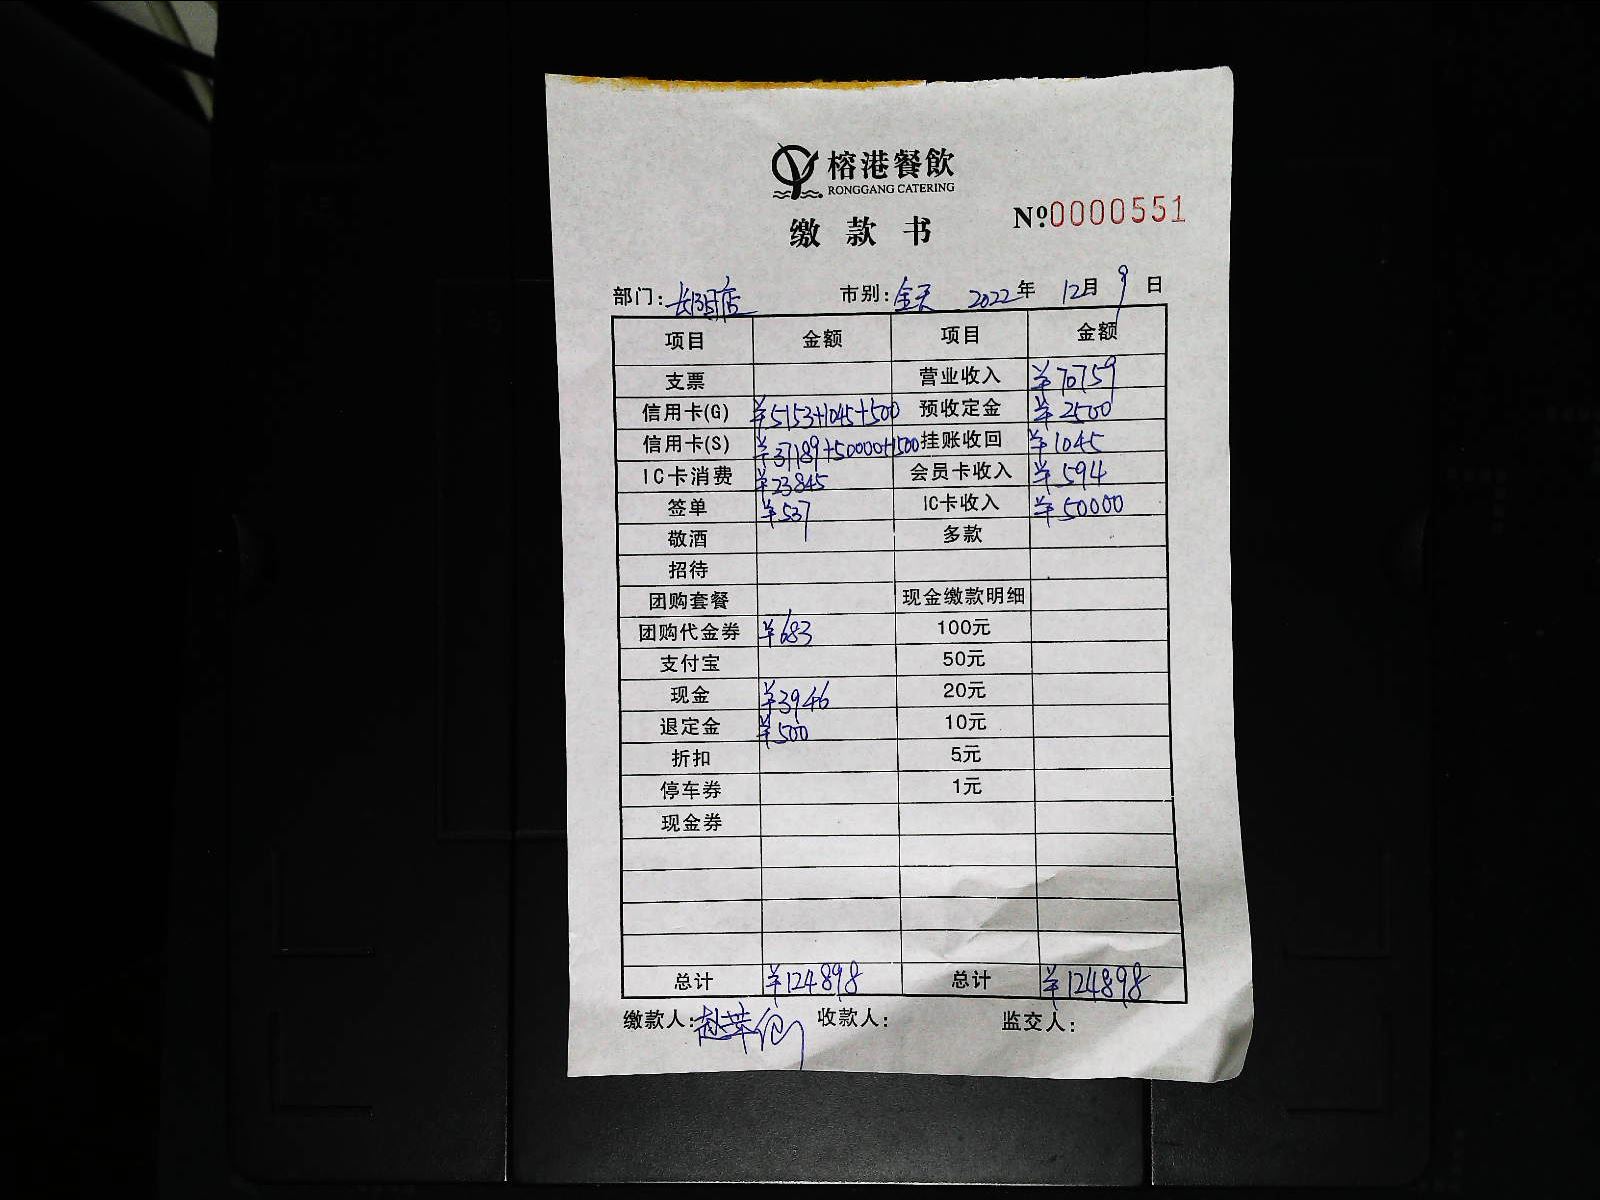 榕港餐飲
RONGGANG CATERING
缴款书
№0000551
部门: 长阳店 市别: 全天 2022年 12月 9日
项目 金额 项目 金额
支票 营业收入 ¥70759
信用卡(G) ¥5153+1045+500 预收定金 ¥2500
信用卡(S) ¥37189+50000+1500 挂账收回 ¥1045
IC卡消费 ¥23845 会员卡收入 ¥594
签单 ¥537 IC卡收入 ¥50000
敬酒 多款
招待
团购套餐 现金缴款明细
团购代金券 ¥683 100元
支付宝 50元
现金 ¥3946 20元
退定金 ¥500 10元
折扣 5元
停车券 1元
现金券
总计 ¥124898 总计 ¥124898
缴款人: 收款人: 监交人: